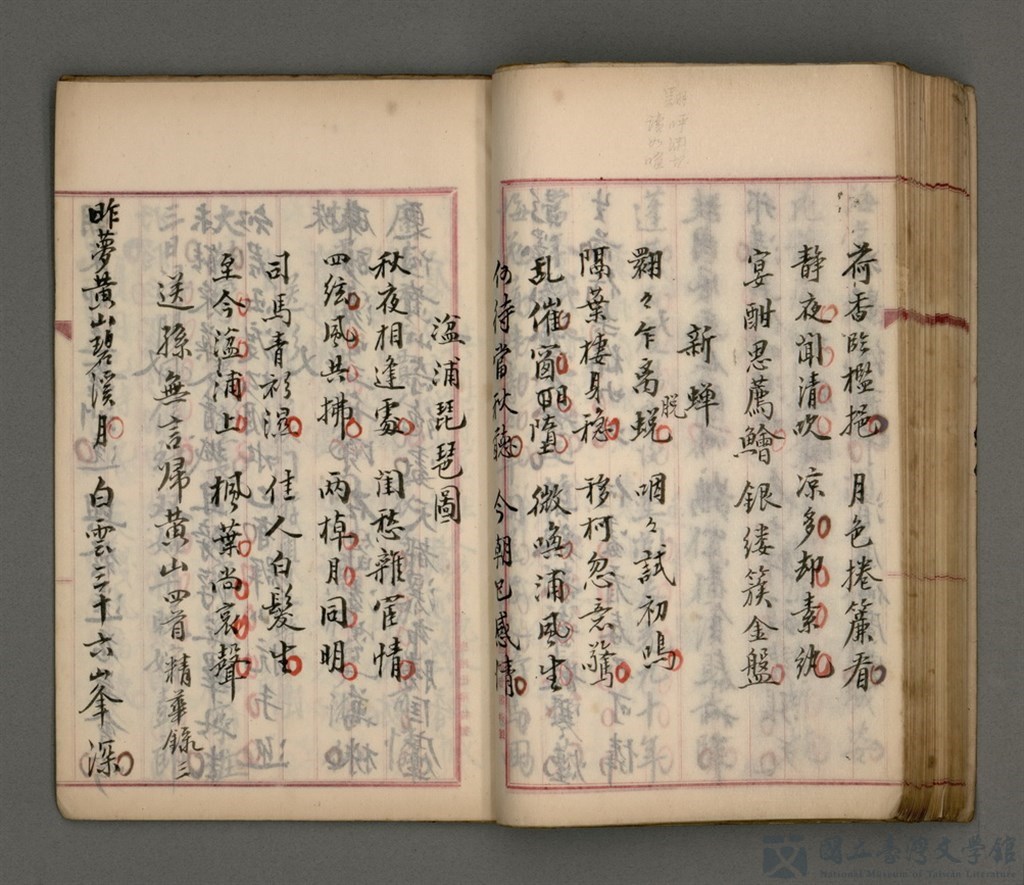 荷香臨檻挹　月色捲簾看
静夜聞清吹　凉多却素紈
宴酣思薦鱠　銀縷簇金盤
新蟬
翾々乍离蜕　咽々試初鳴
脱
隔葉棲身稳　移柯忽意驚
乱催窗日墮　微喚浦風生
何待當秋聽　今朝已感情
湓浦琵琶圖
秋夜相逢處　閨愁雜宦情
四絃風共拂　两棹月同明
司馬青衫濕　佳人白髮生
至今湓浦上　楓葉尚哀聲
送孫無言歸黄山四首 精華録三
昨夢黄山碧溪月　白雲三十六峯深
國立臺灣文學館
National Museum of Taiwan Literature